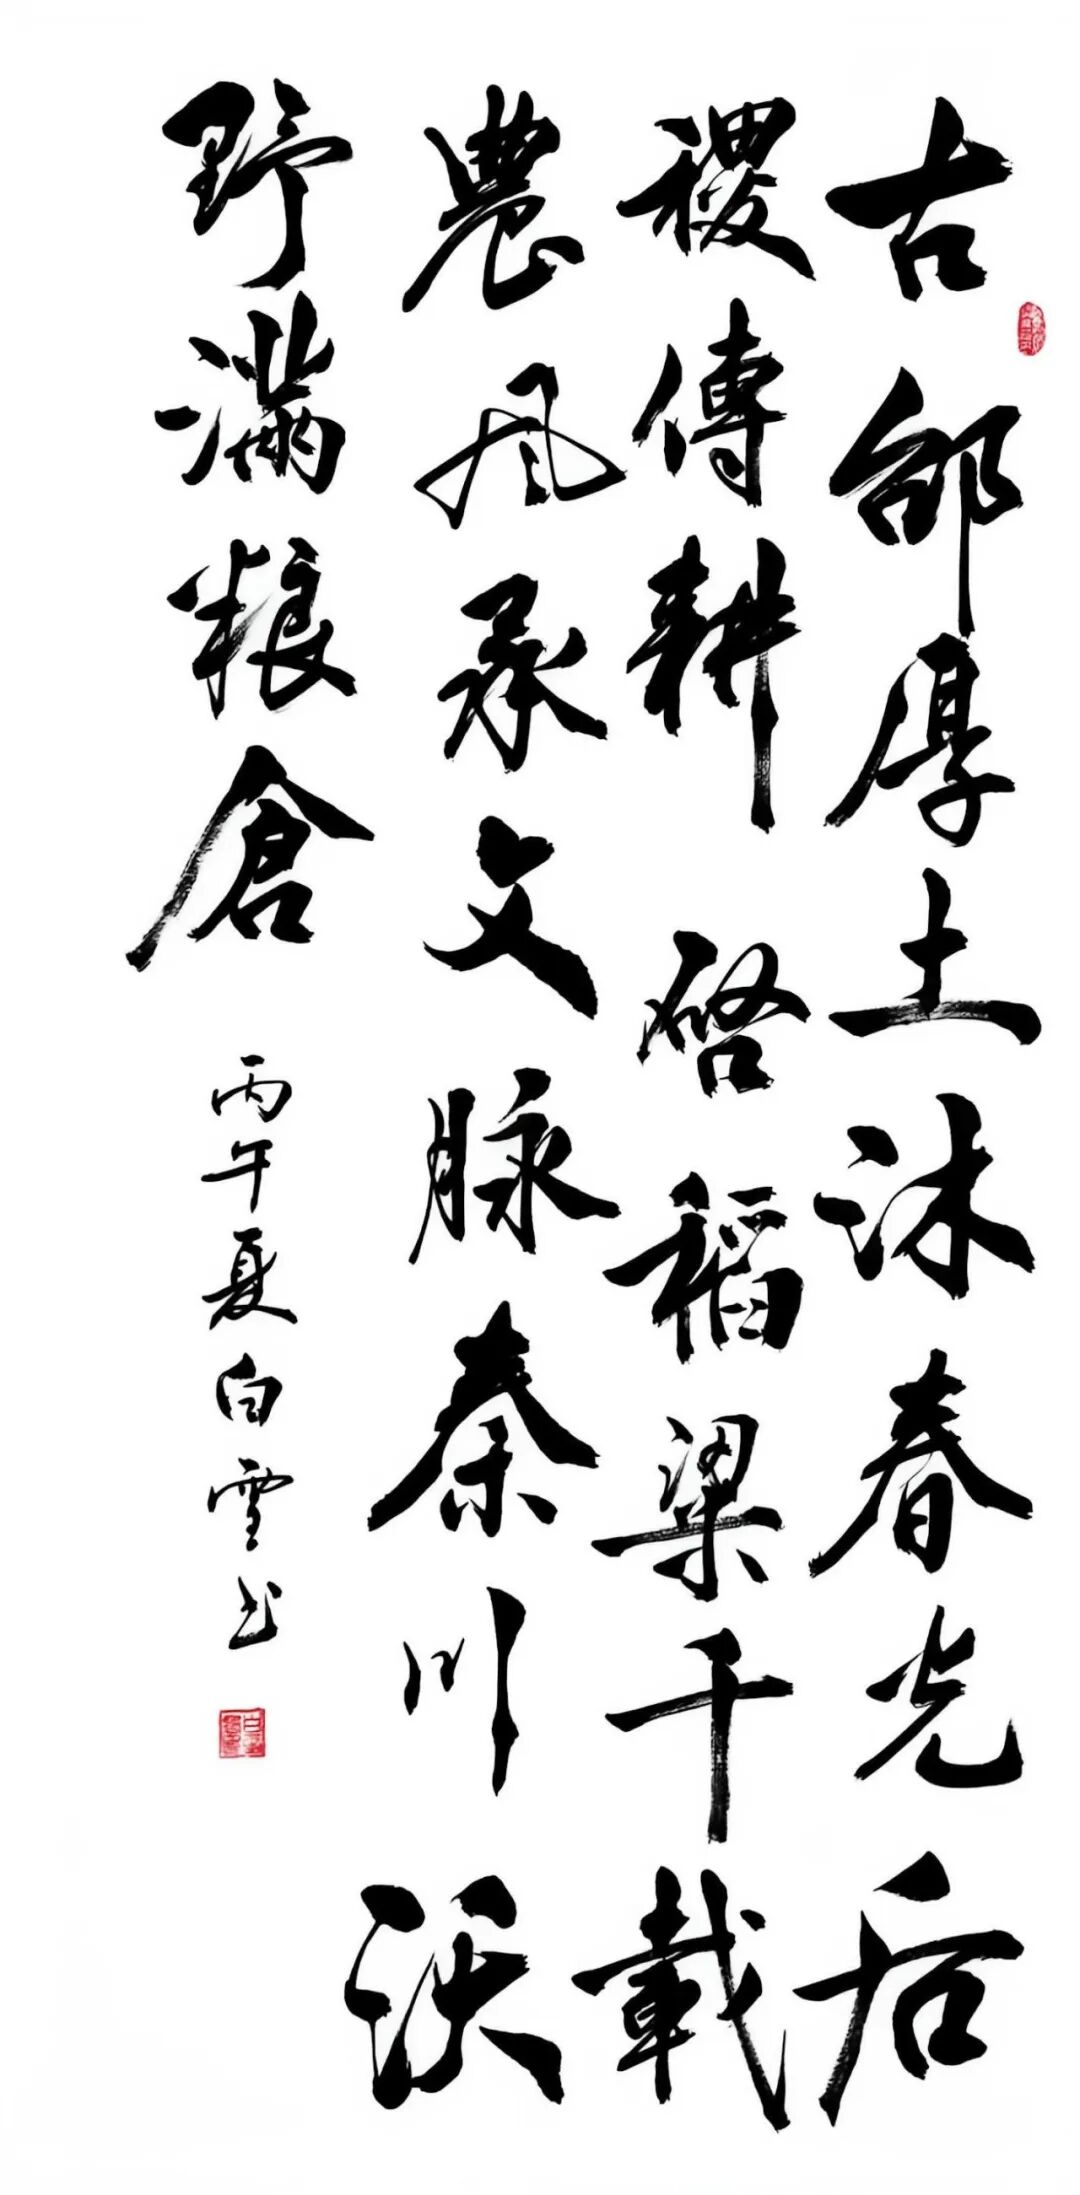 古邰厚土沐春光后
稷傳耕啓稻粱千載
農風承文脉秦川沃
野滿粮倉
丙午夏白雪书